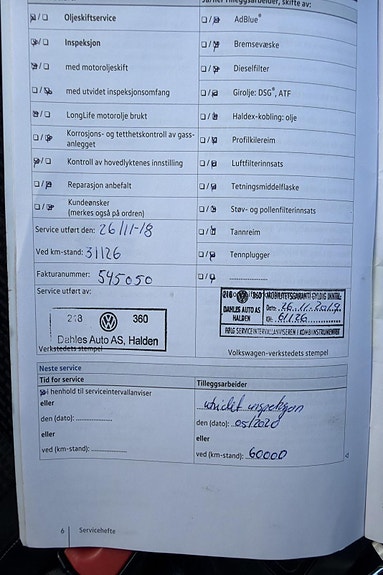 Oljeskiftservice
Inspeksjon
med motoroljeskift
med utvidet inspeksjonsomfang
LongLife motorolje brukt
Korrosjons- og tetthetskontroll av gass-
anlegget
Kontroll av hovedlyktenes innstilling
Reparasjon anbefalt
Kundeønsker
(merkes også på ordren)
Service utført den: 26/11-18
Ved km-stand: 31126
Fakturanummer: 545050
Service utført av:
218 360
Dahles Auto AS, Halden
Verkstedets stempel
tilleggsarbeider, skifte av:
AdBlue®
Bremsevæske
Dieselfilter
Girolje: DSG®, ATF
Haldex-kobling: olje
Profilkilereim
Luftfilterinnsats
Tetningsmiddelflaske
Støv- og pollenfilterinnsats
Tannreim
Tennplugger
218 360 MOBILITETSGARANTI GYLDIG INNTIL:
DAHLES AUTO AS
HALDEN
Dato: 26.11.2019
Km: 61126
FØLG SERVICEINTERVALLANVISEREN I KOMBIINSTRUMENTET
Volkswagen-verkstedets stempel
Neste service
Tid for service
i henhold til serviceintervallanviser
eller
den (dato): ....................
eller
ved (km-stand): ....................
Tilleggsarbeider
utvidet inspeksjon
den (dato): 05/2020
eller
ved (km-stand): 60000
6 Servicehefte